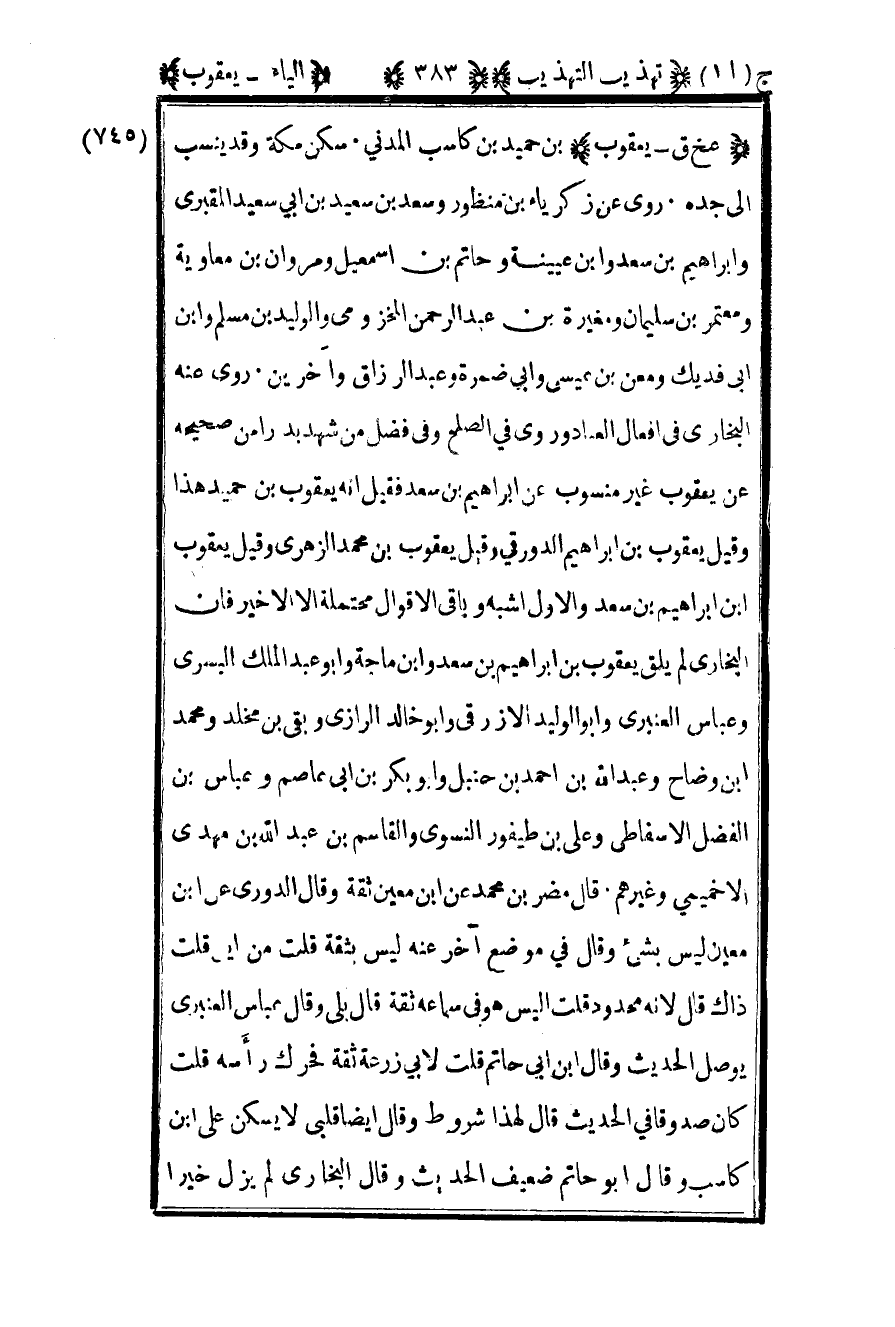 ج (١١) ﴿ تهذيب التهذيب ﴾ ﴿ ٣٨٣ ﴾ ﴿ الياء ـ يعقوب ﴾
﴿ عخ ق ـ يعقوب ﴾ بن حميد بن كاسب المدني · سكن مكة وقد ينسب (٧٤٥)
الى جده · روى عن زكرياء بن منظور وسعد بن سعيد بن ابي سعيد المقبرى
وابراهيم بن سعد وابن عيينة وحاتم بن اسمعيل ومروان بن معاوية
ومعتمر بن سليمان ومغيرة بن عبدالرحمن المخزومى والوليد بن مسلم وابن
ابى فديك ومعن بن عيسى وابي ضمرة وعبدالرزاق وآخرين · روى عنه
البخارى فى افعال العباد وروى في الصلح وفى فضل من شهد بدرا من صحيحه
عن يعقوب غير منسوب عن ابراهيم بن سعد فقيل انه يعقوب بن حميد هذا
وقيل يعقوب بن ابراهيم الدورقي وقيل يعقوب بن محمد الزهرى وقيل يعقوب
ابن ابراهيم بن سعد والاول اشبه وباقى الاقوال محتملة الا الاخير فان
البخارى لم يلق يعقوب بن ابراهيم بن سعد وابن ماجة وابو عبد الملك البسرى
وعباس العنبرى وابو الوليد الازرقى وابو خالد الرازى وبقى بن مخلد ومحمد
ابن وضاح وعبدالله بن احمد بن حنبل وابو بكر بن ابى عاصم وعباس بن
الفضل الاسفاطى وعلى بن طيفور النسوى والقاسم بن عبد الله بن مهدى
الاخميمي وغيرهم · قال مضر بن محمد عن ابن معين ثقة وقال الدورى عن ابن
معين ليس بشئ وقال في موضع آخر عنه ليس بثقة قلت من اين قلت
ذاك قال لانه محدود قلت اليس هو فى سماعه ثقة قال بلى وقال عباس العنبرى
يوصل الحديث وقال ابن ابى حاتم قلت لابي زرعة ثقة فحرك رأسه قلت
كان صدوقا في الحديث قال لهذا شروط وقال ايضا قلبى لا يسكن على ابن
كاسب وقال ابو حاتم ضعيف الحديث وقال البخارى لم يزل خيرا